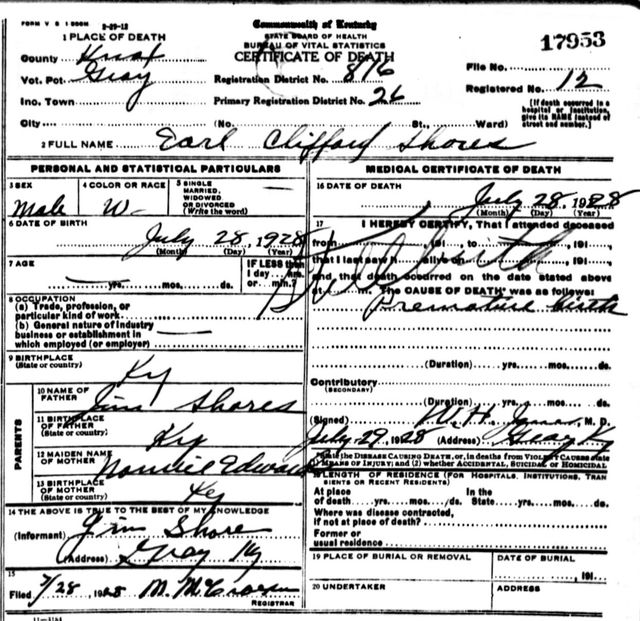 FORM V S 1 500M 2-29-12
Commonwealth of Kentucky
STATE BOARD OF HEALTH
BUREAU OF VITAL STATISTICS
CERTIFICATE OF DEATH
17953
1 PLACE OF DEATH
County Knox
Vot. Pct. Gray
Inc. Town
City (No. St., Ward)
Registration District No. 816
Primary Registration District No. 26
File No.
Registered No. 12
[If death occurred in a hospital or institution, give its NAME instead of street and number.]
2 FULL NAME Earl Clifford Shores
PERSONAL AND STATISTICAL PARTICULARS
3 SEX
Male
4 COLOR OR RACE
W-
5 SINGLE, MARRIED, WIDOWED OR DIVORCED (Write the word)
6 DATE OF BIRTH
July 28, 1928
(Month) (Day) (Year)
7 AGE
yrs. mos. ds.
IF LESS than
1 day hrs.
or min.?
8 OCCUPATION
(a) Trade, profession, or
particular kind of work
(b) General nature of industry
business or establishment in
which employed (or employer)
9 BIRTHPLACE
(State or country)
Ky
PARENTS
10 NAME OF FATHER
Jim Shores
11 BIRTHPLACE OF FATHER
(State or country)
Ky
12 MAIDEN NAME OF MOTHER
Edwards
13 BIRTHPLACE OF MOTHER
(State or country)
Ky
14 THE ABOVE IS TRUE TO THE BEST OF MY KNOWLEDGE
(Informant) Jim Shore
(Address) Gray Ky
15
Filed 7/28, 1928 M.
REGISTRAR
11-3184
MEDICAL CERTIFICATE OF DEATH
16 DATE OF DEATH
July 28, 1928
(Month) (Day) (Year)
17 I HEREBY CERTIFY, That I attended deceased
from 191 , to 191 ,
that I last saw h alive on , 191 ,
and that death occurred on the date stated above
at m. The CAUSE OF DEATH* was as follows:
Premature birth
(Duration) yrs. mos. ds.
Contributory
(SECONDARY)
(Duration) yrs. mos. ds.
(Signed) W.H. M. D.
July 29, 1928 (Address) Gray Ky
*State the DISEASE CAUSING DEATH, or, in deaths from VIOLENT CAUSES state
(1) MEANS OF INJURY; and (2) whether ACCIDENTAL, SUICIDAL OR HOMICIDAL
18 LENGTH OF RESIDENCE (FOR HOSPITALS, INSTITUTIONS, TRANSIENTS OR RECENT RESIDENTS)
At place In the
of death yrs. mos. ds. State yrs. mos. ds.
Where was disease contracted,
if not at place of death?
Former or
usual residence
19 PLACE OF BURIAL OR REMOVAL
DATE OF BURIAL
, 191
20 UNDERTAKER
ADDRESS